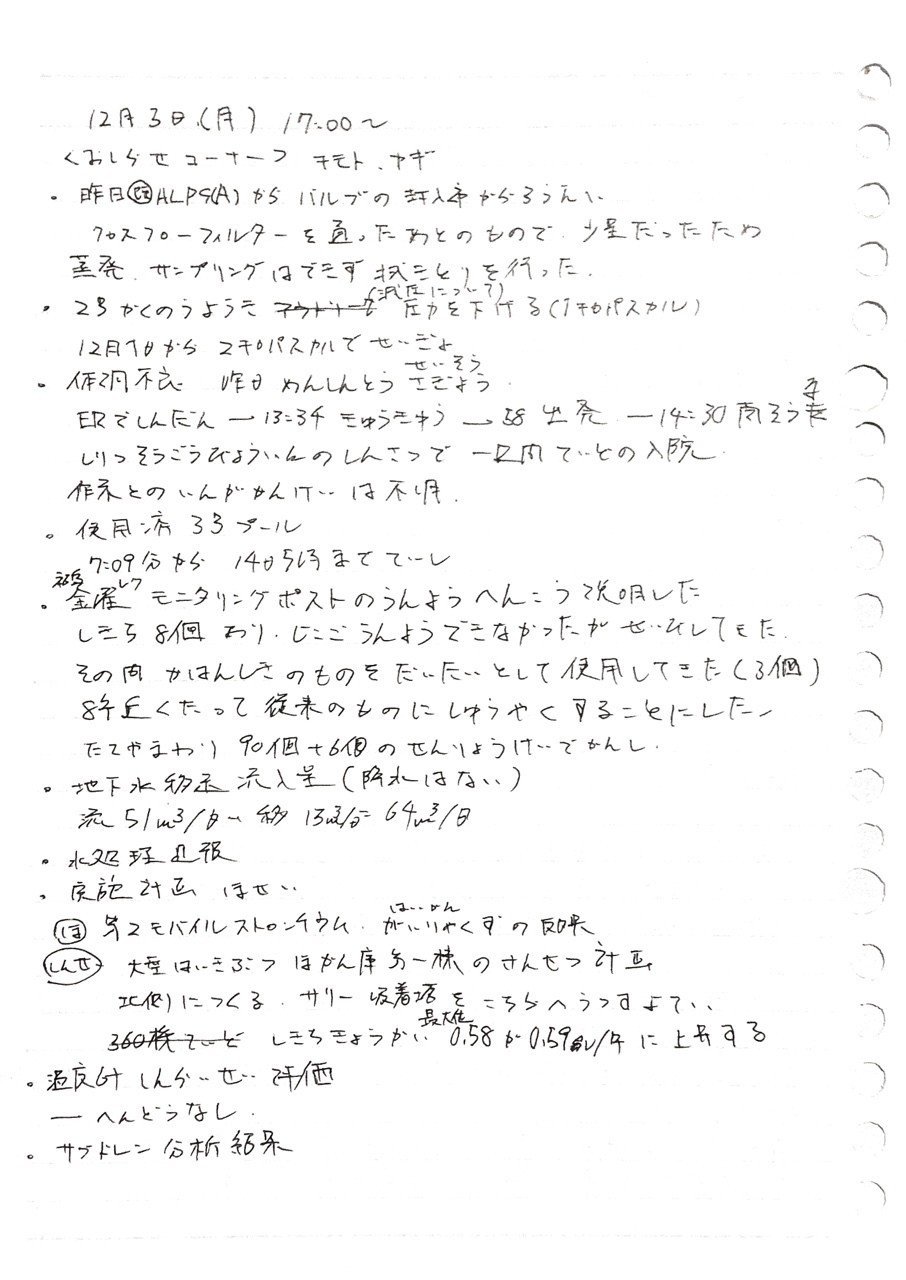 12月3日(月) 17:00〜
<おしらせコーナー> キモト、ヤギ
・昨日 ALPS(A)から バルブの からろうえい
クロスフローフィルターを通ったあとのもので、少量だったため
蒸発、サンプリングはできず 拭きとりを行った。
(減圧について)
・2号かくのうようき 圧力を下げる(1キロパスカル)
12月 日から 2キロパスカルで せいぎょ
せいそう
・体調不良 昨日 めんしんとう さぎょう
ERでしんだん → 13:34 きゅうきゅう → 58 出発 → 14:30 到
しりつそうごうびょういんのしんさつで 一 間ていどの入院
作業とのいんがかんけいは不明.
・使用済 3号プール
7:09分から 14日5時までていし
・金曜 レク モニタリングポストのうんようへんこう説明した
しきち 8個 あり、じこご うんようできなかったが せいびしてきた.
その間 かはんしきのものをだいたいとして使用してきた(3個)
8年近くたって 従来のものにしゅうやくすることにした
たてやまわり 90個+6個のせんりょうけいでかんし.
・地下水移送 流入量(降水はない)
流 51m³/日 移 13m³/日= 64m³/日
・水処理週報
・実施計画 ほせい
はいかん
(ほ) 第2モバイルストロンチウム、がいりゃくずの反映
(しんせ) 大型はいきぶつ ほかん庫 第一棟のさんせつ計画
北側につくる、サリー 吸着塔をこちらへうつすよてい、
最大値
360 ていど しきちきょうかい 0.58が0.59 /年に上昇する
・温度計 しんらいせい 評価
— へんどうなし.
・サブドレン 分析結果